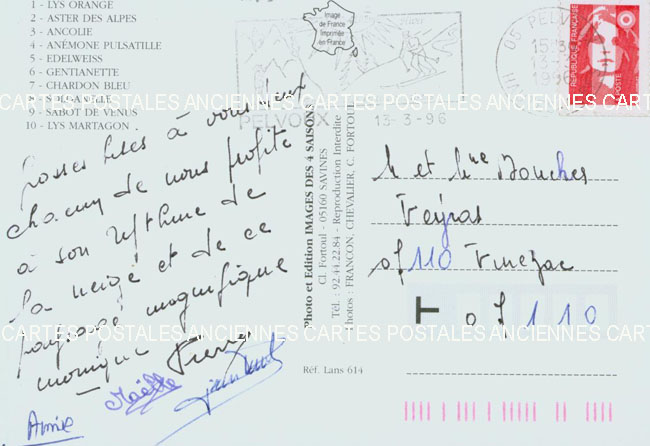 1 - LYS ORANGE
2 - ASTER DES ALPES
3 - ANCOLIE
4 - ANÉMONE PULSATILLE
5 - EDELWEISS
6 - GENTIANETTE
7 - CHARDON BLEU
9 - SABOT DE VENUS
10 - LYS MARTAGON
Image
de France
Imprimée
en France
PELVOUX 13-3-96
05 PELVOUX
15 H 30
13-3
1996
RÉPUBLIQUE FRANÇAISE
LA POSTE
CARTES POSTALES ANCIENNES CARTES POSTALES ANCIENNES CARTES
Grosses bises à vous deux
chacun de nous profite
à son rythme de
la neige et de ce
paysage magnifique
monique Pierre
Maëlle
Annie
Photo et Edition IMAGES DES 4 SAISONS
Cl. Fortoul - 05160 SAVINES
Tél. : 92.44.22.84 - Reproduction Interdite
Photos : FRANCOU, CHEVALIER, C. FORTOUL
Réf. Lans 614
M et Mme Bouches
Veyras
07110 Vinezac
T 07110
CARTES POSTALES ANCIENNES CARTES POSTALES ANCIENNES CARTES